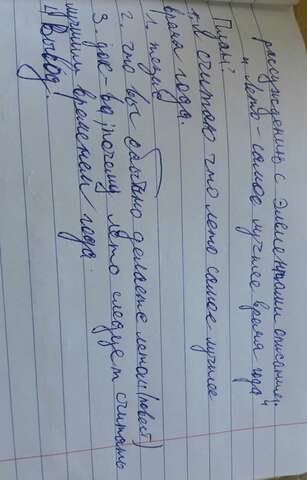 рассуждению с элементами описания.
"Лето - самое лучшее время года"
План:
я считаю что лето самое лучшее
время года.
1. тезис
2. что вы обычно делаете летом (повест)
3. док-ва, почему лето следует считать
лучшим временем года.
4) Вывод.